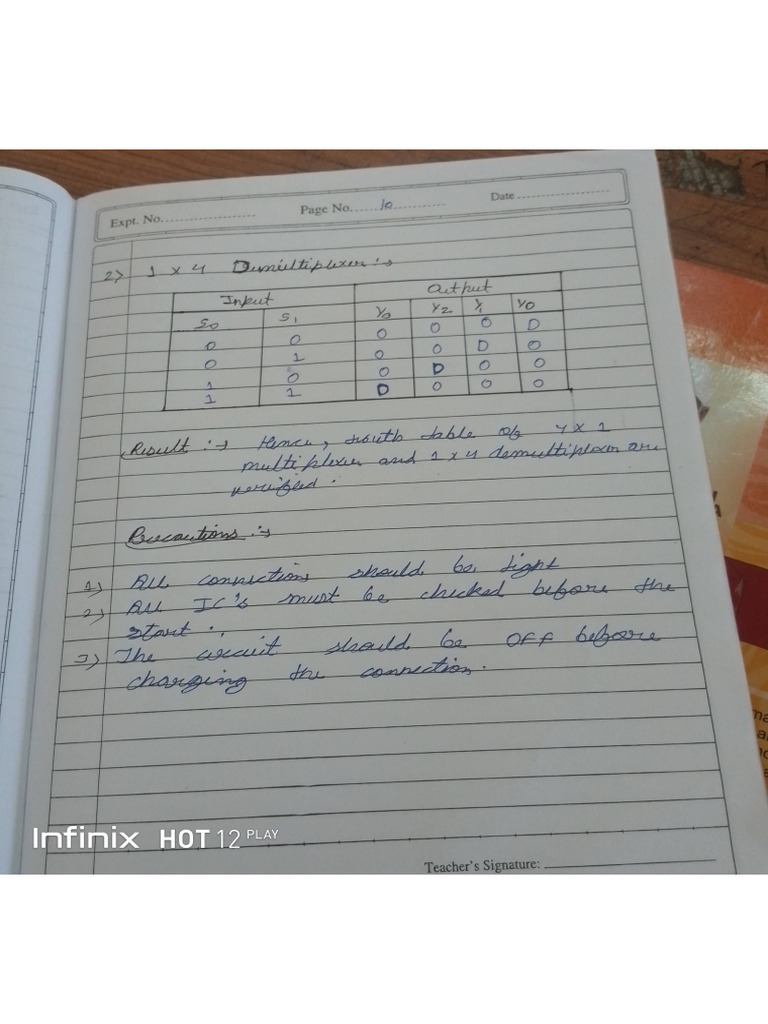 Expt. No.
Page No. 10
Date
2) 1 x 4 Demultiplexer :→
Input Output
S0 S1 Y0 Y2 Y1 Y0
0 0 0 0 0 D
0 1 0 0 D 0
1 0 0 D 0 0
1 1 D 0 0 0
Result :→ Hence, truth table of 4 x 1
multiplexer and 1 x 4 demultiplexer are
verified.
Precautions :→
1) All connections should be tight
2) All IC's must be checked before the
start.
3) The circuit should be OFF before
charging the connection.
Infinix HOT 12 PLAY
Teacher's Signature: